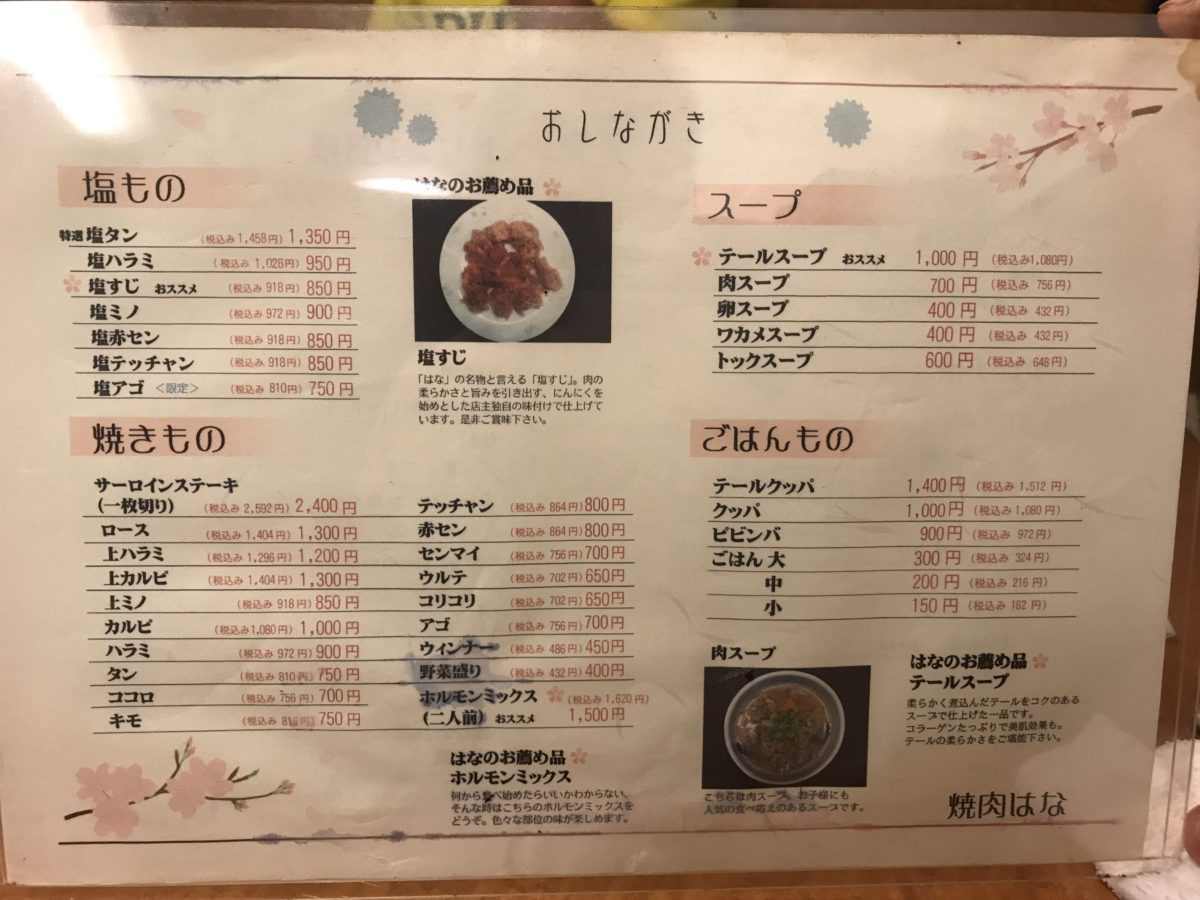 おしながき
塩もの
特選 塩タン (税込み 1,458円) 1,350 円
塩ハラミ (税込み 1,026円) 950 円
塩すじ おススメ (税込み 918円) 850 円
塩ミノ (税込み 972円) 900 円
塩赤セン (税込み 918円) 850 円
塩テッチャン (税込み 918円) 850 円
塩アゴ <限定> (税込み 810円) 750 円
はなのお薦め品
塩すじ
「はな」の名物と言える「塩すじ」。肉の
柔らかさと旨みを引き出す、にんにくを
始めとした店主独自の味付けで仕上げて
います。是非ご賞味下さい。
焼きもの
サーロインステーキ
(一枚切り) (税込み 2,592円) 2,400 円
ロース (税込み 1,404円) 1,300 円
上ハラミ (税込み 1,296円) 1,200 円
上カルビ (税込み 1,404円) 1,300 円
上ミノ (税込み 918円) 850 円
カルビ (税込み1,080円) 1,000 円
ハラミ (税込み 972円) 900 円
タン (税込み 810円) 750 円
ココロ (税込み 756円) 700 円
キモ (税込み 円) 750 円
テッチャン (税込み 864円) 800円
赤セン (税込み 864円) 800円
センマイ (税込み 756円) 700円
ウルテ (税込み 702円) 650円
コリコリ (税込み 702円) 650円
アゴ (税込み 756円) 700円
ウィンナー (税込み 486円) 450円
野菜盛り (税込み 432円) 400円
ホルモンミックス (税込み 1,620円)
(二人前) おススメ 1,500円
はなのお薦め品
ホルモンミックス
何から食べ始めたらいいかわからない、
そんな時はこちらのホルモンミックスを
どうぞ。色々な部位の味が楽しめます。
スープ
テールスープ おススメ 1,000 円 (税込み1,080円)
肉スープ 700 円 (税込み 756円)
卵スープ 400 円 (税込み 432円)
ワカメスープ 400 円 (税込み 432円)
トックスープ 600 円 (税込み 648円)
ごはんもの
テールクッパ 1,400円 (税込み 1,512 円)
クッパ 1,000円 (税込み 1,080 円)
ビビンバ 900円 (税込み 972円)
ごはん 大 300 円 (税込み 324円)
中 200 円 (税込み 216 円)
小 150 円 (税込み 162 円)
肉スープ
こちらは肉スープ。お子様にも
人気の食べ応えのあるスープです。
はなのお薦め品
テールスープ
柔らかく煮込んだテールをコクのある
スープで仕上げた一品です。
コラーゲンたっぷりで美肌効果も。
テールの柔らかさをご堪能下さい。
焼肉はな